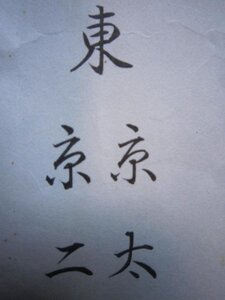 東
京太
京二